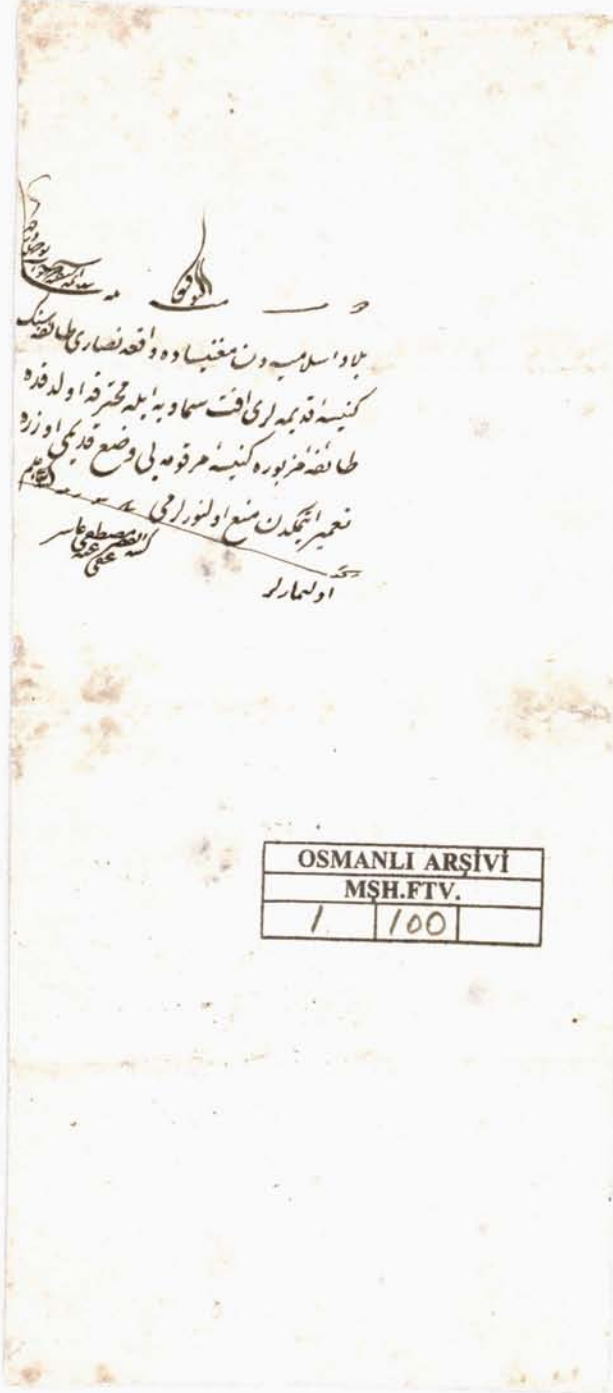 بلاد اسلامیه دن مغنیساده واقعه نصاری طائفه سنک
کنیسۀ قدیمه لری آفت سماویه ایله محترقه اولدقده
طائفۀ مزبوره کنیسۀ مرقومه یی وضع قدیمی اوزره
تعمیر ایتمکدن منع اولنورلرمی
اولمازلر
کتبه الفقیر مصطفی عاشر
عفی عنه
OSMANLI ARŞİVİ
MŞH.FTV.
1 100